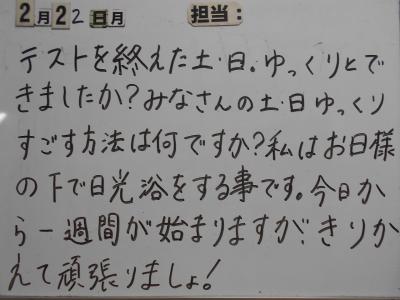 2月22日月 担当:
テストを終えた土・日。ゆっくりとで
きましたか?みなさんの土・日ゆっくり
すごす方法は何ですか?私はお日様
の下で日光浴をする事です。今日か
ら一週間が始まりますが、きりか
えて頑張りましょ!